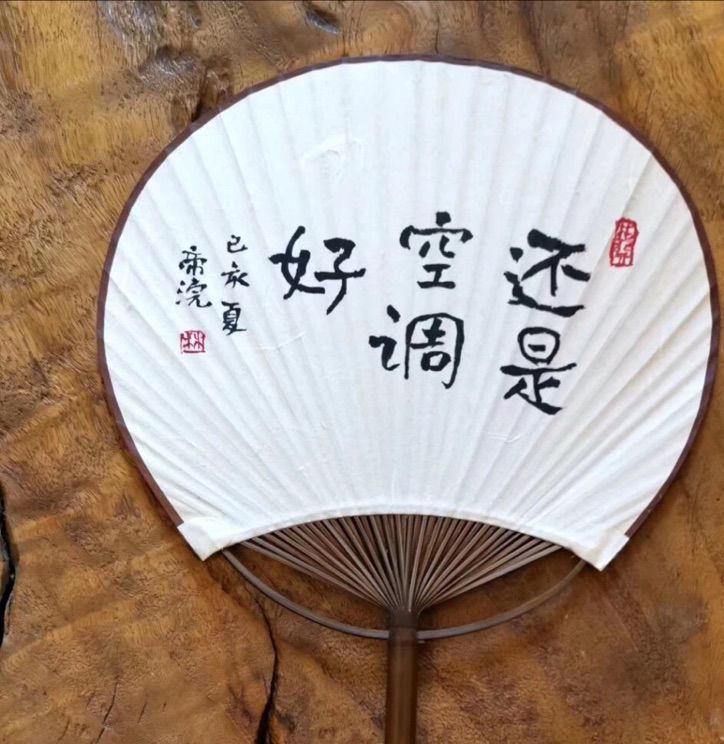 还是
空调
好
己亥夏
帝浣